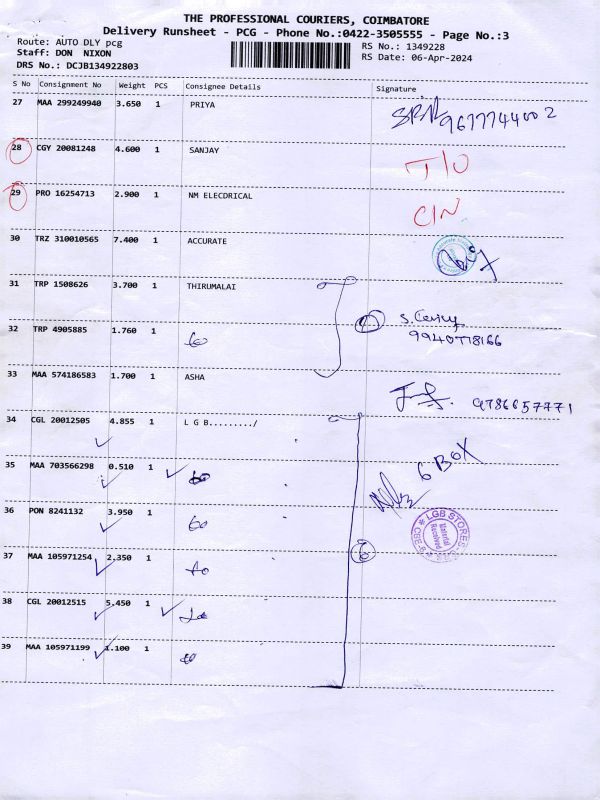 THE PROFESSIONAL COURIERS, COIMBATORE
Delivery Runsheet - PCG - Phone No.:0422-3505555 - Page No.:3
Route: AUTO DLY pcg
RS No.: 1349228
Staff: DON NIXON
RS Date: 06-Apr-2024
DRS No.: DCJB134922803
S No Consignment No Weight PCS Consignee Details Signature
27 MAA 299249940 3.650 1 PRIYA 9677744002
28 CGY 20081248 4.600 1 SANJAY T/O
29 PRO 16254713 2.900 1 NM ELECDRICAL C/N
30 TRZ 310010565 7.400 1 ACCURATE
31 TRP 1508626 3.700 1 THIRUMALAI
32 TRP 4905885 1.760 1 9940718166
33 MAA 574186583 1.700 1 ASHA 9786657771
34 CGL 20012505 4.855 1 L G B........./
35 MAA 703566298 0.510 1 6 BOX
36 PON 8241132 3.950 1 LGB STORES Material Received CBE-6
37 MAA 105971254 2.350 1 6
38 CGL 20012515 5.450 1
39 MAA 105971199 1.100 1